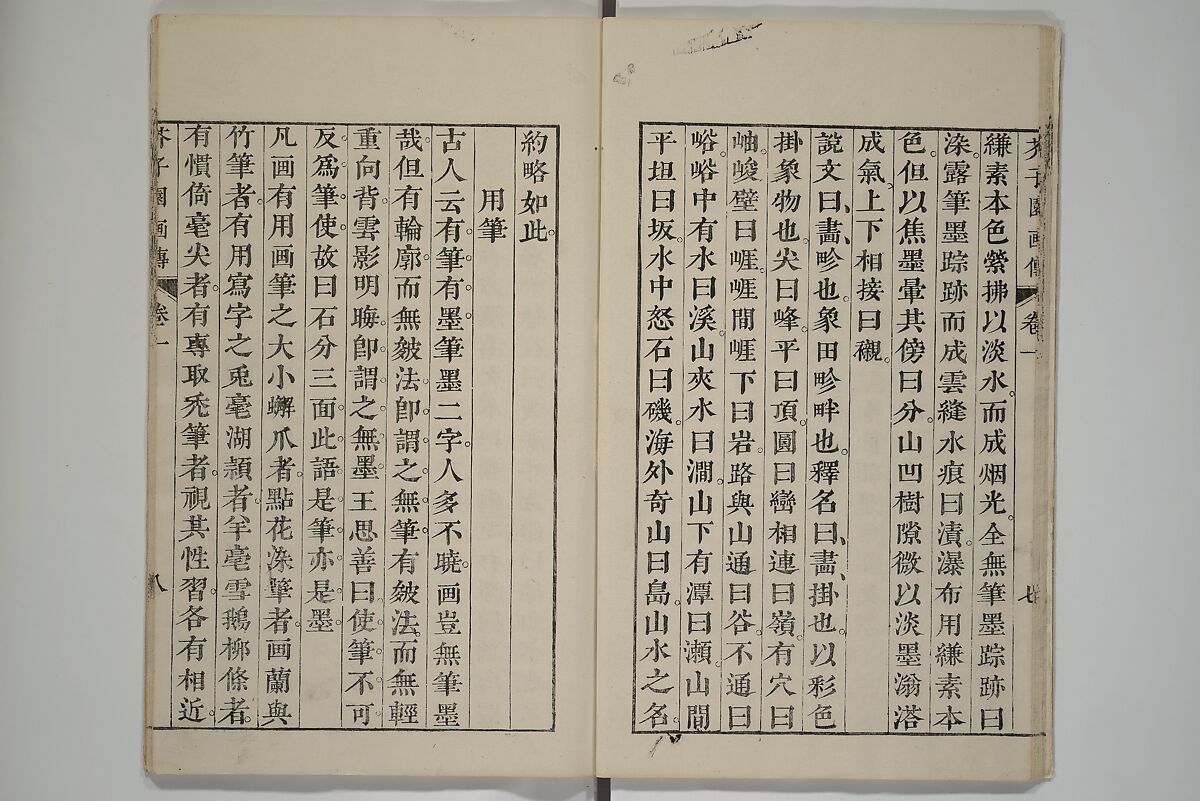 芥子園畫傳 卷一 七
縑素本色縈拂以淡水。而成烟光。全無筆墨踪跡曰
染。露筆墨踪跡而成雲縫水痕曰漬。瀑布用縑素本
色。但以焦墨暈其傍曰分。山凹樹隙微以淡墨滃溚
成氣。上下相接曰襯。
說文曰、畵、畛也。象田畛畔也。釋名曰、畵、掛也。以彩色
掛象物也。尖曰峰。平曰頂。圓曰巒。相連曰嶺。有穴曰
岫。峻壁曰崕。崕間崕下曰岩。路與山通曰谷。不通曰
峪。峪中有水曰溪。山夾水曰澗。山下有潭曰瀨。山間
平坦曰坂。水中怒石曰磯。海外奇山曰島。山水之名。
約略如此。
用筆
古人云。有筆有墨。筆墨二字。人多不曉。画豈無筆墨
哉。但有輪廓而無皴法。卽謂之無筆。有皴法。而無輕
重向背。雲影明晦。卽謂之無墨。王思善曰。使筆不可
反爲筆使。故曰石分三面。此語是筆亦是墨
凡画有用画筆之大小蠏爪者。點花染筆者。画蘭與
竹筆者。有用寫字之兎毫湖穎者。羊毫雪鵝柳條者。
有慣倚毫尖者。有專取禿筆者。視其性習。各有相近。
芥子園画傳 卷一 八